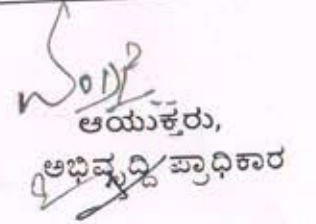 ಆಯುಕ್ತರು,
ಅಭಿವೃದ್ಧಿ ಪ್ರಾಧಿಕಾರ